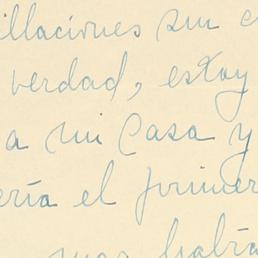 illaciones sin c
verdad, estoy
a mi casa y
ería el primer
mas había